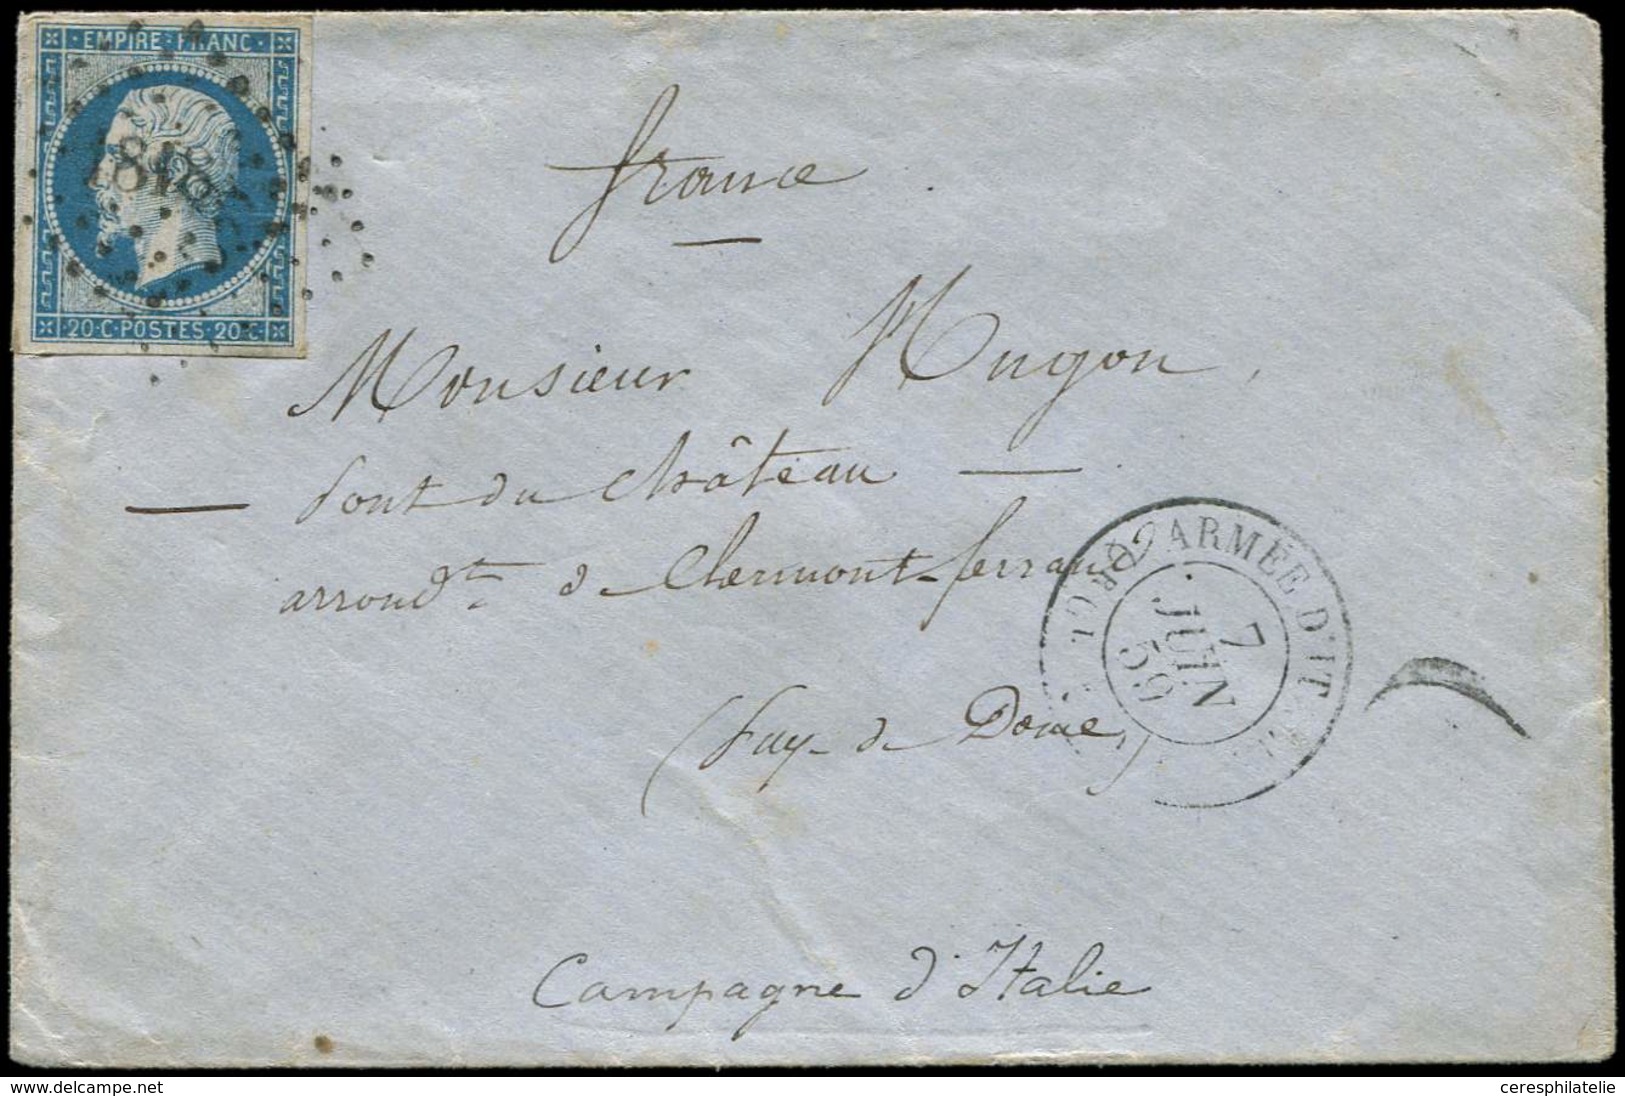 EMPIRE FRANC
20·C·POSTES·20·C
france
Monsieur Hugon,
— Pont du Château —
arrond^t de Clermont-ferrand
(Puy-de Dome)
ARMÉE D'IT
7
JUIN
59
Campagne d'Italie
www.delcampe.net
ceresphilatelie